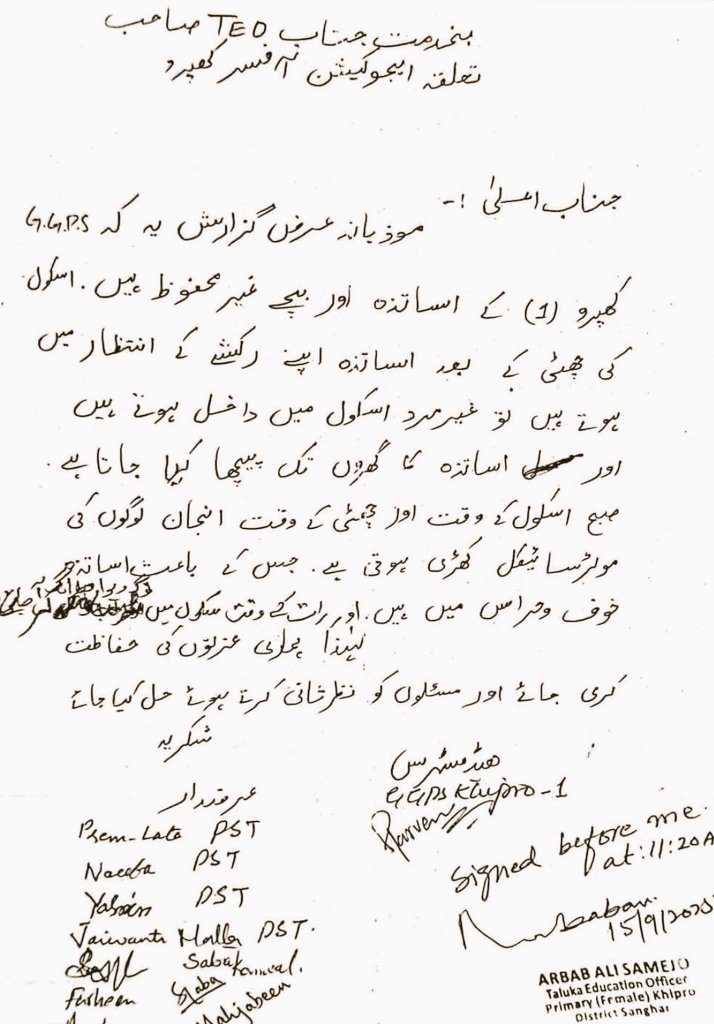 بخدمت جناب TEO صاحب
تعلقہ ایجوکیشن آفیسر کھپرو
جناب اعلیٰ !-
موذبانہ عرض گزارش یہ کہ G.G.P.S
کھپرو (1) کے اساتذہ اور بچے غیر محفوظ ہیں. اسکول
کی چھٹی کے بعد اساتذہ اپنے رکشے کے انتظار میں
ہوتے ہیں تو غیر مرد اسکول میں داخل ہوتے ہیں
اور اساتذہ کا گھروں تک پیچھا کیا جاتا ہے.
صبح اسکول کے وقت اور چھٹی کے وقت انجان لوگوں کی
موٹرسائیکل کھڑی ہوتی ہے. جس کے باعث اساتذہ
خوف وحراس میں ہیں. اور رات کے وقت سکول میں
لہٰذا ہماری عزتوں کی حفاظت
کری جائے اور مسئلوں کو نظرثانی کرتے ہوئے حل کیا جائے
شکریہ
ھیڈ مسٹریس
GGPS Khipro-1
Parveen
عرضدار
Prem-Lata PST
Naeeba PST
Yasmin PST
Jaiwanti Malla PST.
Sabak Kanwal.
Farheen Saba
Mahjabeen
Signed before me
at: 11:20 A
15/9/2025
ARBAB ALI SAMEJO
Taluka Education Officer
Primary (Female) Khipro
District Sanghar